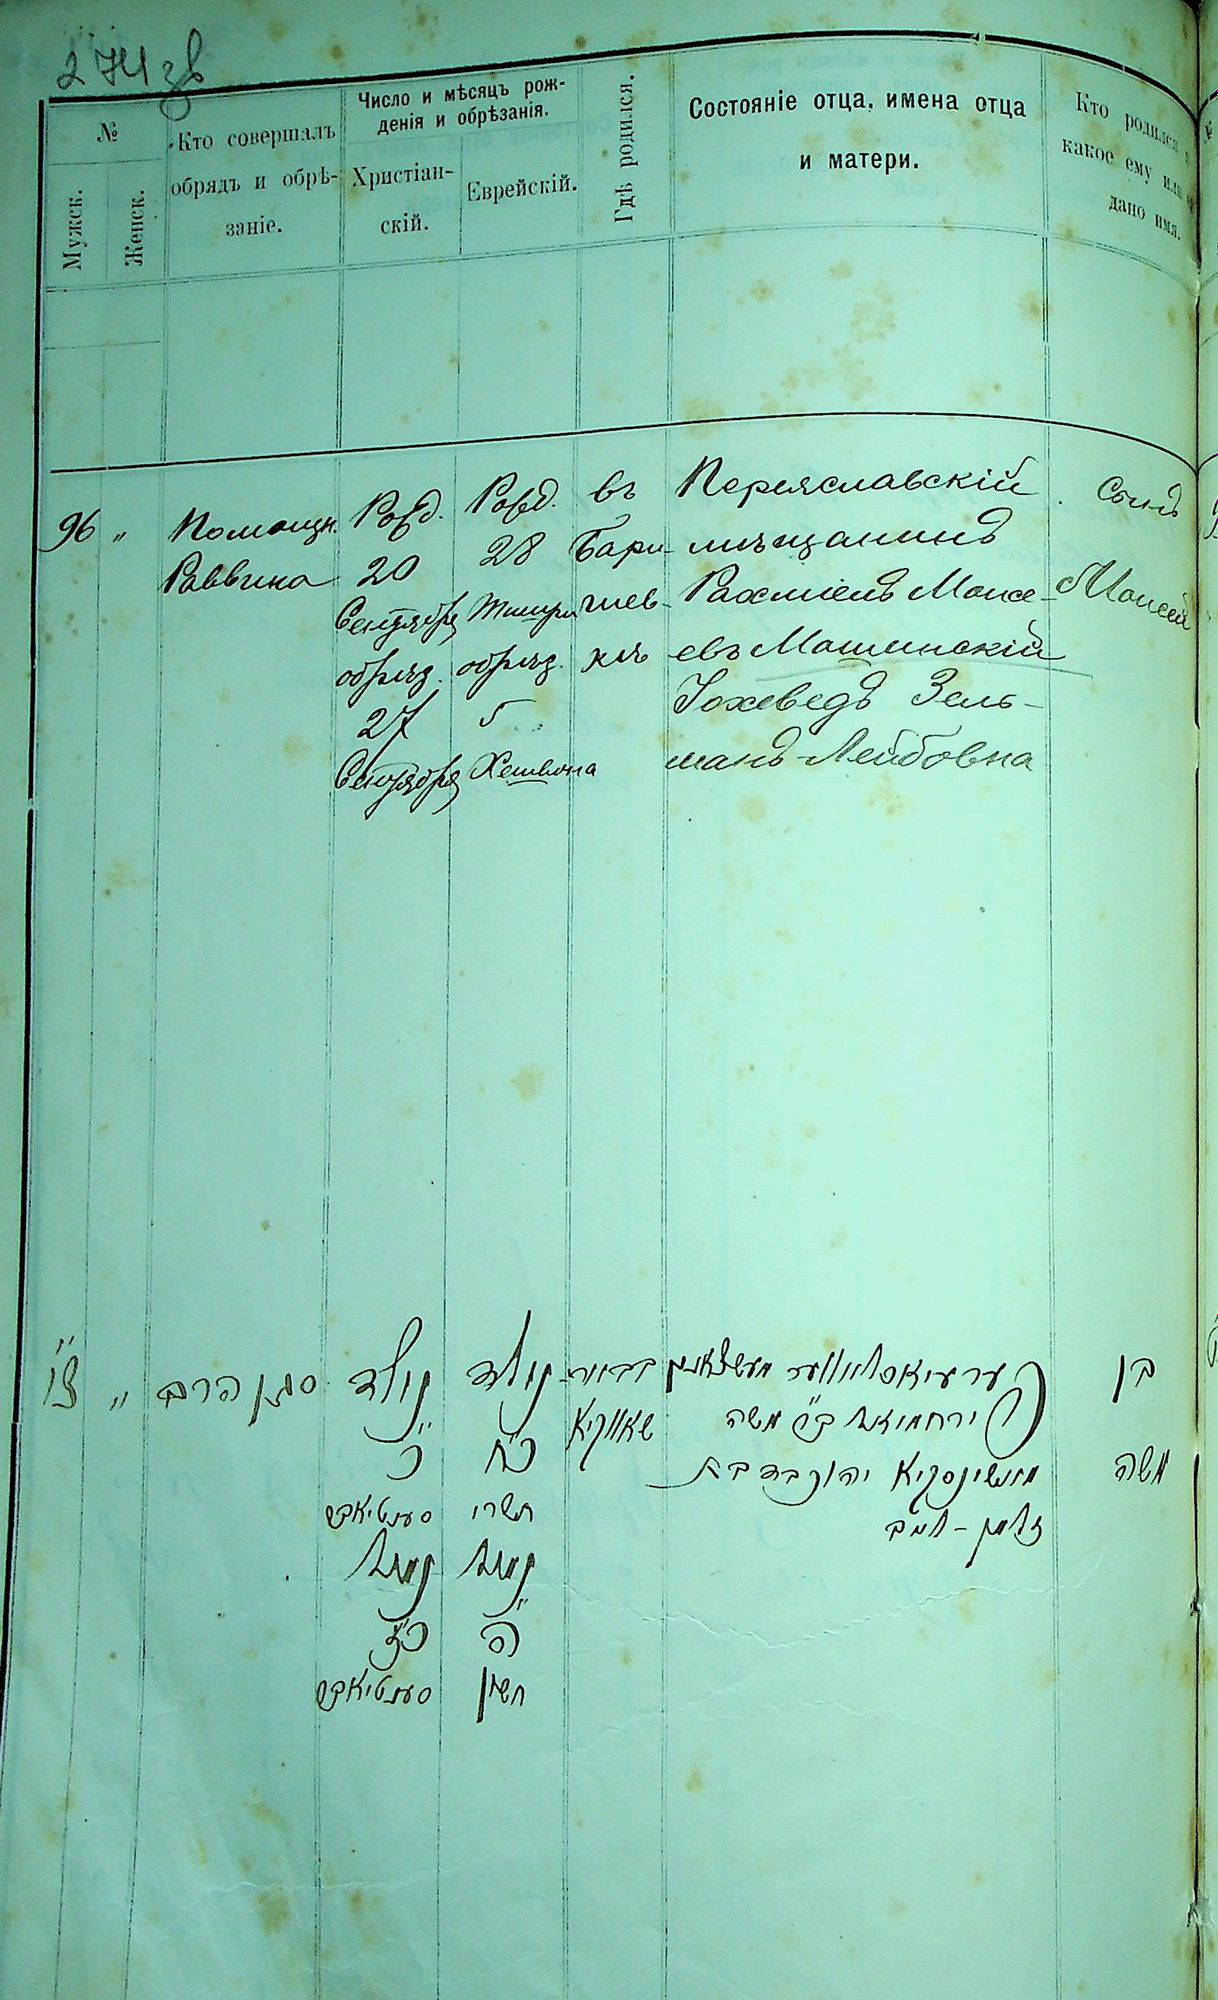 274 зв
№
Мужск.
Женск.
Кто совершалъ
обрядъ и обрѣ-
заніе.
Число и мѣсяцъ рож-
денія и обрѣзанія.
Христіан-
скій.
Еврейскій.
Гдѣ родился.
Состояніе отца, имена отца
и матери.
Кто родился и
какое ему или
дано имя.
96 „
Помощн.
Раввина
Рожд.
20
Сентября
обрѣз.
27
Сентября
Рожд.
28
Тишри
обрѣз.
5
Хешвона
въ
Бари-
шев-
кѣ
Переяславскій
мѣщанинъ
Рахміель Моисе-
евъ Машинскій
Іохеведъ Зель-
манъ-Лейбовна
Сынъ
Моисей
צ״ו „
סגן הרב
נולד
כ׳
סענטיאבר
נימול
כ״ז
סענטיאבר
נולד
כ״ח
תשרי
נימול
ה׳
חשון
משה
יהוכבד בת
זלמן - ליב
בן
משה